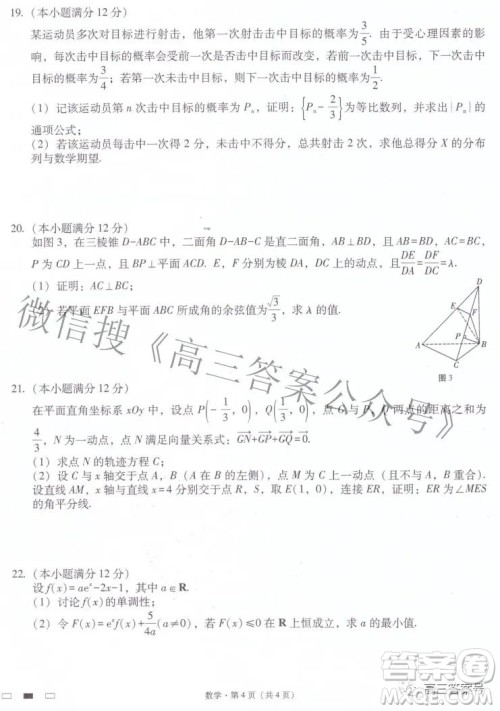 19. (本小题满分 12 分)
某运动员多次对目标进行射击,他第一次射击击中目标的概率为 3/5. 由于受心理因素的影
响,每次击中目标的概率会受前一次是否击中目标而改变,若前一次击中目标,下一次击中
目标的概率为 3/4;若第一次未击中目标,则下次击中目标的概率为 1/2.
(1) 记该运动员第 n 次击中目标的概率为 Pₙ,证明:{Pₙ-2/3}为等比数列,并求出{Pₙ}的
通项公式;
(2) 若该运动员每击中一次得 2 分,未击中不得分,总共射击 2 次,求他总得分 X 的分布
列与数学期望.
20. (本小题满分 12 分)
如图 3,在三棱锥 D-ABC 中,二面角 D-AB-C 是直二面角,AB⊥BD,且 AB=BC=BD,
P 为 CD 上一点,且 BP⊥平面 ACD. E,F 分别为棱 DA,DC 上的动点,且 DE/DA=DF/DC=λ.
(1) 证明:AC⊥BC;
(2) 若平面 EFB 与平面 ABC 所成角的余弦值为 √3/3,求 λ 的值.
D
E
F
P
A
B
C
图 3
21. (本小题满分 12 分)
在平面直角坐标系 xOy 中,设点 P(-1/3, 0),Q(1/3, 0),点 G 与 P,Q 两点的距离之和为
4/3,N 为一动点,点 N 满足向量关系式:GN+GP+GQ=0.
(1) 求点 N 的轨迹方程 C;
(2) 设 C 与 x 轴交于点 A,B (A 在 B 的左侧),点 M 为 C 上一动点 (且不与 A,B 重合).
设直线 AM,x 轴与直线 x=4 分别交于点 R,S,取 E(1, 0),连接 ER,证明:ER 为∠MES
的角平分线.
22. (本小题满分 12 分)
设 f(x)=aeˣ-2x-1,其中 a∈R.
(1) 讨论 f(x)的单调性;
(2) 令 F(x)=eˣf(x)+5/4a(a≠0),若 F(x)≤0 在 R 上恒成立,求 a 的最小值.
数学·第 4 页 (共 4 页)
微信搜《高三答案公众号》
答案圈
高三答案号